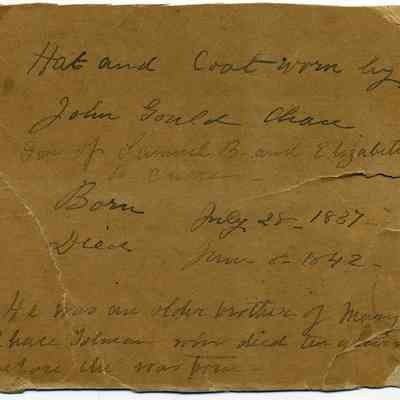 Hat and Coat worn by
John Gould Chace
Son of Samuel B. and Elizabeth
B. Chace -
Born July 28 - 1837 -
Died June 8 - 1842 -
He was an older brother of Mary
Chace Tolman who died ten years
before she was born -